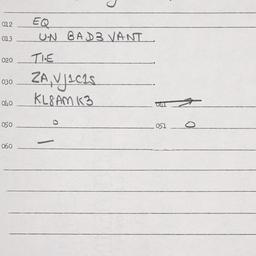 012 EQ
013 UN BAD3 VANT
020 TIE
030 ZA,VJ1C1S
040 KL8AMK3
050 0 051 0
060 —